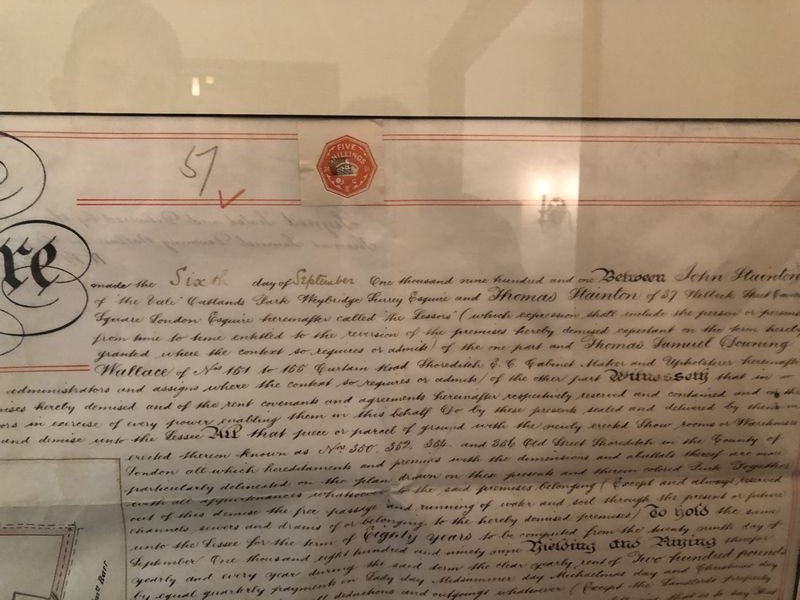 57
FIVE SHILLINGS
re
made the Sixth day of September One thousand nine hundred and one Between John Stainton
of "the Vale" Oatlands Park Weybridge Surrey Esquire and Thomas Stainton of 37 Street
Square London Esquire hereinafter called "the Lessors" (which expression shall include the person or persons
from time to time entitled to the reversion of the premises hereby demised expectant on the term hereby
granted where the context so requires or admits) of the one part and Thomas Samuel Downing
Wallace of Nos 151 to 155 Curtain Road Shoreditch E.C. Cabinet Maker and Upholsterer hereinafter
administrators and assigns where the context so requires or admits) of the other part Witnesseth that in
ises hereby demised and of the rent covenants and agreements hereinafter respectively reserved and contained and on the
ors in exercise of every power enabling them in this behalf Do by these presents sealed and delivered by them
and demise unto the Lessee All that piece or parcel of ground with the newly erected Show rooms or Warehouses
erected thereon known as Nos 350. 352. 354. and 356 Old Street Shoreditch in the County of
London all which hereditaments and premises with the dimensions and abuttals thereof are more
particularly delineated on the plan drawn on these presents and thereon colored Pink Together
with all appurtenances whatsoever to the said premises belonging (Except and always reserved
out of this demise the free passage and running of water and soil through the present or future
channels sewers and drains of or belonging to the hereby demised premises) To hold the same
unto the Lessee for the term of Eighty years to be computed from the twenty ninth day of
September One thousand eight hundred and ninety nine Yielding and Paying therefor
yearly and every year during the said term the clear yearly rent of Two hundred pounds
by equal quarterly payments on Lady day Midsummer day Michaelmas day and Christmas day
all deductions and outgoings whatsoever (Except the Landlords property